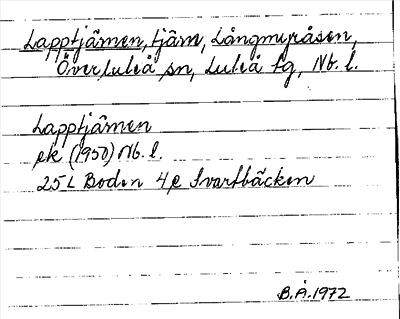 Lapptjärnen, tjärn, Långmyråsen,
Överluleå sn, Luleå tg, Nb. l.
Lapptjärnen
ek (1950) Nb. l.
25 L Boden 4 e Svartbäcken
B.Å.1972